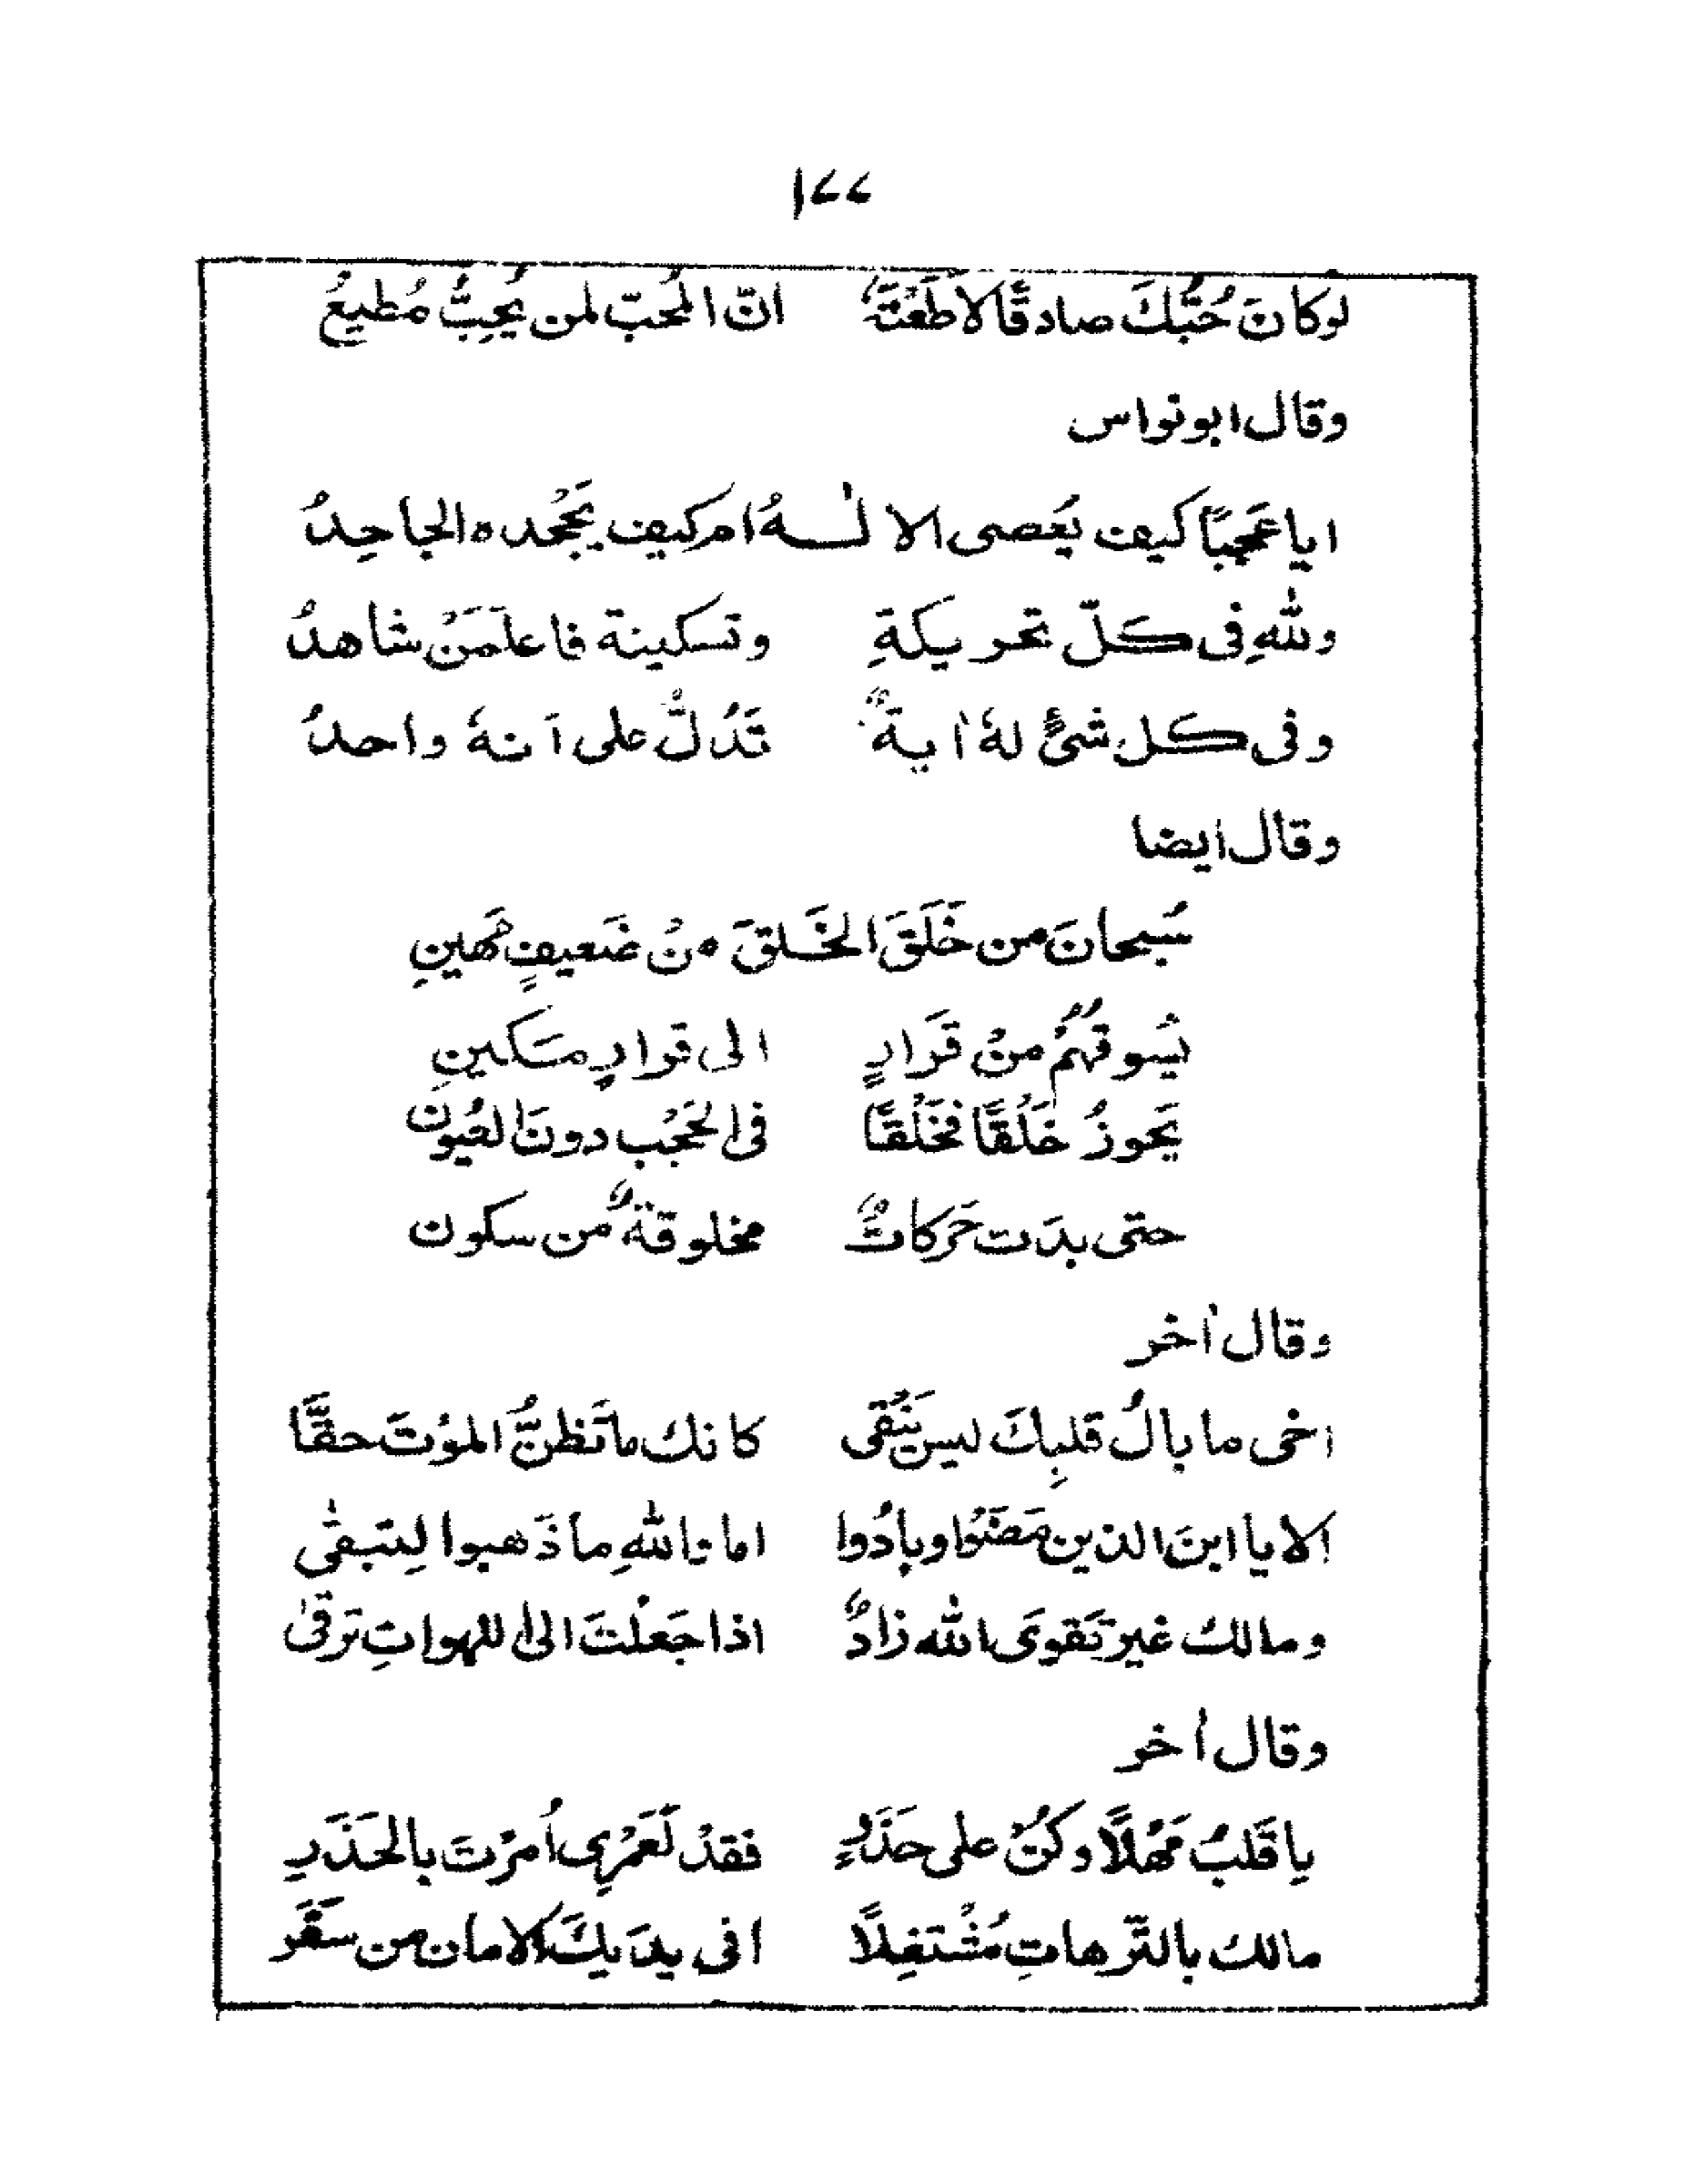 ١٤٤
لوكانَ حُبُّكَ صادقًا لاَطَعْتَهٗ انّ المُحبّ لمن يُحِبُّ مُطيعُ
وقال ابو نواس
ايا عَجَبًا كيف يُعصى الالٰـهُ ام كيف يَجْحده الجاحِدُ
وللّٰهِ فى كلّ تحريكةِ وتسكينة فاعلَمَنْ شاهدُ
وفى كل شئٍ لهٗ اٰيةٌ تَدُلُّ على اَنهٗ واحدُ
وقال ايضا
سُبحانَ من خَلَقَ الخَلقَ منْ ضَعيفٍ مَهينِ
يَسُوقهُمُ منْ قَرَارٍ الى قرارٍ مَكينِ
يَحوزُ خَلْقًا فخَلْقًا فى الحُجُب دونَ العُيون
حتى بدَت حَركاتٌ مخلوقةٌ من سكون
وقال اٰخر
اخى ما بالُ قلبِكَ ليس يَنْقى كانك ما تَظنُّ الموْتَ حقَّا
الا يا ابنَ الذين مَضَوْا وبادُوا اما باللّٰهِ ما ذَهبوا لِتبقٰى
ومالك غير تَقوَى الله زادٌ اذا جَعلْتَ الى اللهواتِ ترقىٰ
وقال اٰخر
يا قَلبُ مَهْلًا وكُنْ على حذَرٍ فقدْ لَعَمْرِى اُمرْتَ بالحَذَرِ
مالك بالتّرهاتِ مُشْتغِلًا افى يدَيكَ الامان من سقَر